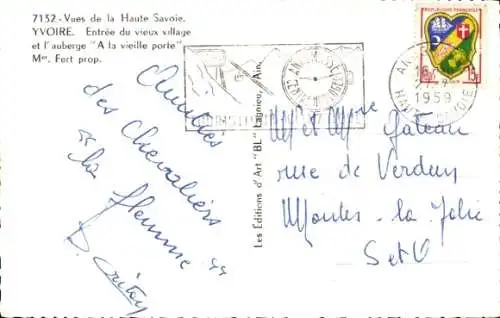 7132 - Vues de la Haute Savoie.
YVOIRE. Entrée du vieux village
et l'auberge "A la vieille porte"
Mme. Fert prop.
Amitiés
des Chevaliers
de la flemme
Les Editions d'Art "BL" Lagnieu, Ain.
REPUBLIQUE FRANÇAISE
15F
1959
HAUTE-SAVOIE
Mr et Mme Gateau
rue de Verdun
Mantes-la Jolie
S et O